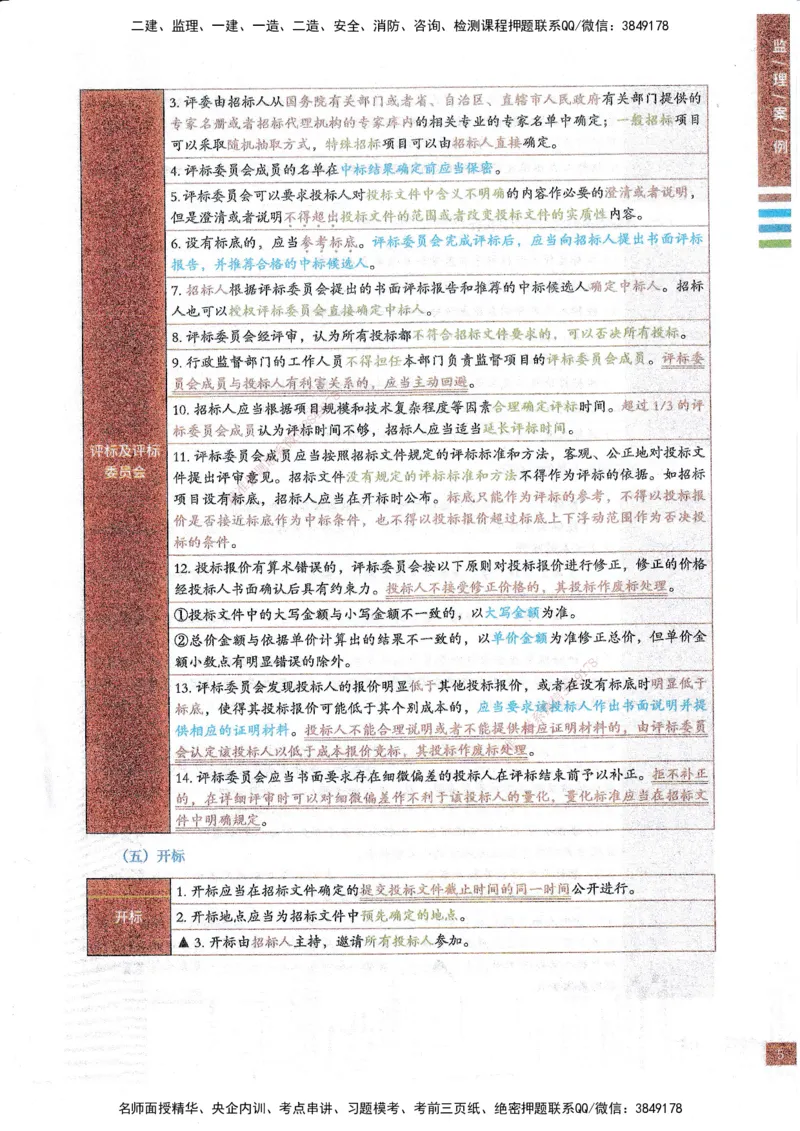 二建、监理、一建、一造、二造、安全、消防、咨询、检测课程押题联系QQ/微信：3849178
监/理/案/例
3. 评委由招标人从国务院有关部门或者省、自治区、直辖市人民政府有关部门提供的
专家名册或者招标代理机构的专家库内的相关专业的专家名单中确定；一般招标项目
可以采取随机抽取方式，特殊招标项目可以由招标人直接确定。
4. 评标委员会成员的名单在中标结果确定前应当保密。
5. 评标委员会可以要求投标人对投标文件中含义不明确的内容作必要的澄清或者说明，
但是澄清或者说明不得超出投标文件的范围或者改变投标文件的实质性内容。
6. 设有标底的，应当参考标底。评标委员会完成评标后，应当向招标人提出书面评标
报告，并推荐合格的中标候选人。
7. 招标人根据评标委员会提出的书面评标报告和推荐的中标候选人确定中标人。招标
人也可以授权评标委员会直接确定中标人。
8. 评标委员会经评审，认为所有投标都不符合招标文件要求的，可以否决所有投标。
9. 行政监督部门的工作人员不得担任本部门负责监督项目的评标委员会成员。评标委
员会成员与投标人有利害关系的，应当主动回避。
10. 招标人应当根据项目规模和技术复杂程度等因素合理确定评标时间。超过 1/3 的评
标委员会成员认为评标时间不够，招标人应当适当延长评标时间。
评标及评标
委员会
11. 评标委员会成员应当按照招标文件规定的评标标准和方法，客观、公正地对投标文
件提出评审意见。招标文件没有规定的评标标准和方法不得作为评标的依据。如招标
项目设有标底，招标人应当在开标时公布。标底只能作为评标的参考，不得以投标报
价是否接近标底作为中标条件，也不得以投标报价超过标底上下浮动范围作为否决投
标的条件。
12. 投标报价有算术错误的，评标委员会按以下原则对投标报价进行修正，修正的价格
经投标人书面确认后具有约束力。投标人不接受修正价格的，其投标作废标处理。
①投标文件中的大写金额与小写金额不一致的，以大写金额为准。
②总价金额与依据单价计算出的结果不一致的，以单价金额为准修正总价，但单价金
额小数点有明显错误的除外。
13. 评标委员会发现投标人的报价明显低于其他投标报价，或者在设有标底时明显低于
标底，使得其投标报价可能低于其个别成本的，应当要求该投标人作出书面说明并提
供相应的证明材料。投标人不能合理说明或者不能提供相应证明材料的，由评标委员
会认定该投标人以低于成本报价竞标，其投标作废标处理。
14. 评标委员会应当书面要求存在细微偏差的投标人在评标结束前予以补正。拒不补正
的，在详细评审时可以对细微偏差作不利于该投标人的量化，量化标准应当在招标文
件中明确规定。
（五）开标
开标
1. 开标应当在招标文件确定的提交投标文件截止时间的同一时间公开进行。
2. 开标地点应当为招标文件中预先确定的地点。
▲ 3. 开标由招标人主持，邀请所有投标人参加。
5
名师面授精华、央企内训、考点串讲、习题模考、考前三页纸、绝密押题联系QQ/微信：3849178